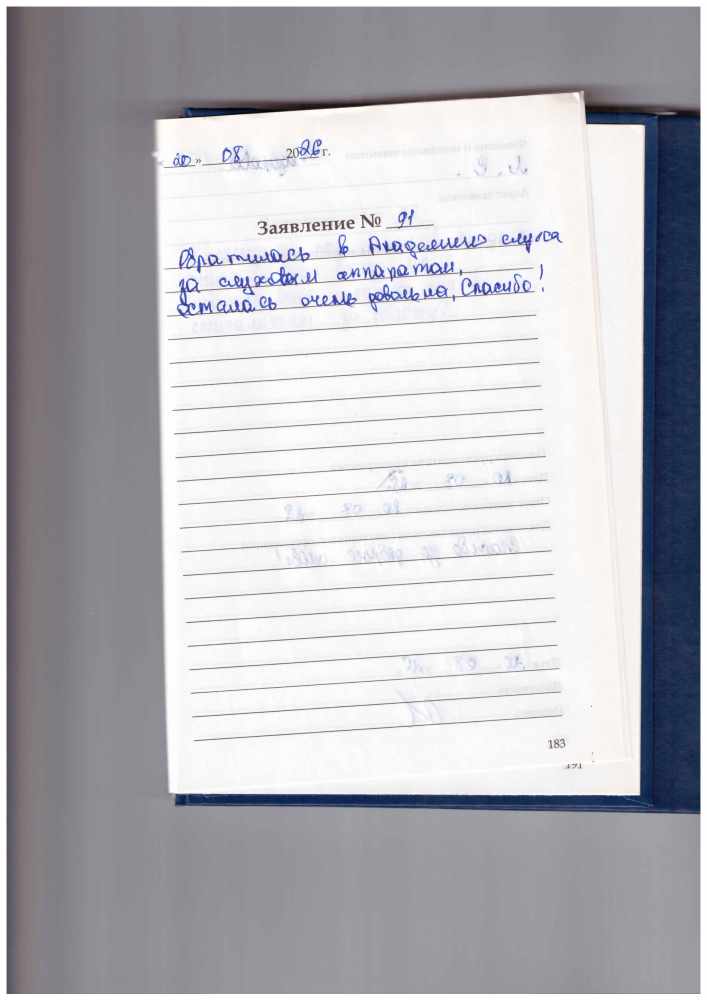 20 » 08 2026 г.
Заявление № 91
Обратилась в Академию слуха
за слуховым аппаратом,
осталась очень довольна, Спасибо!
183
191